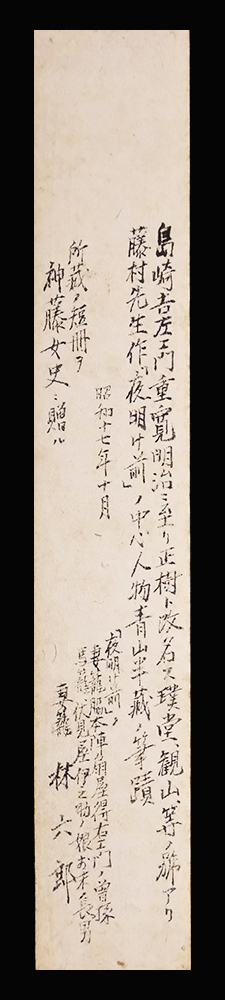 島崎吉左ヱ門重寛明治ニ至リ正樹ト改名ス璞堂、観山、等ノ號アリ
藤村先生作「夜明け前」ノ中心人物青山半蔵ノ筆蹟
昭和十七年十月
所蔵ノ短冊ヲ
神藤女史ニ贈ル
「夜明け前」ノ
妻籠脇本陣扇屋得右ヱ門ノ曽孫
馬籠伏見屋伊之助ノ
長男
妻籠 林 六郎